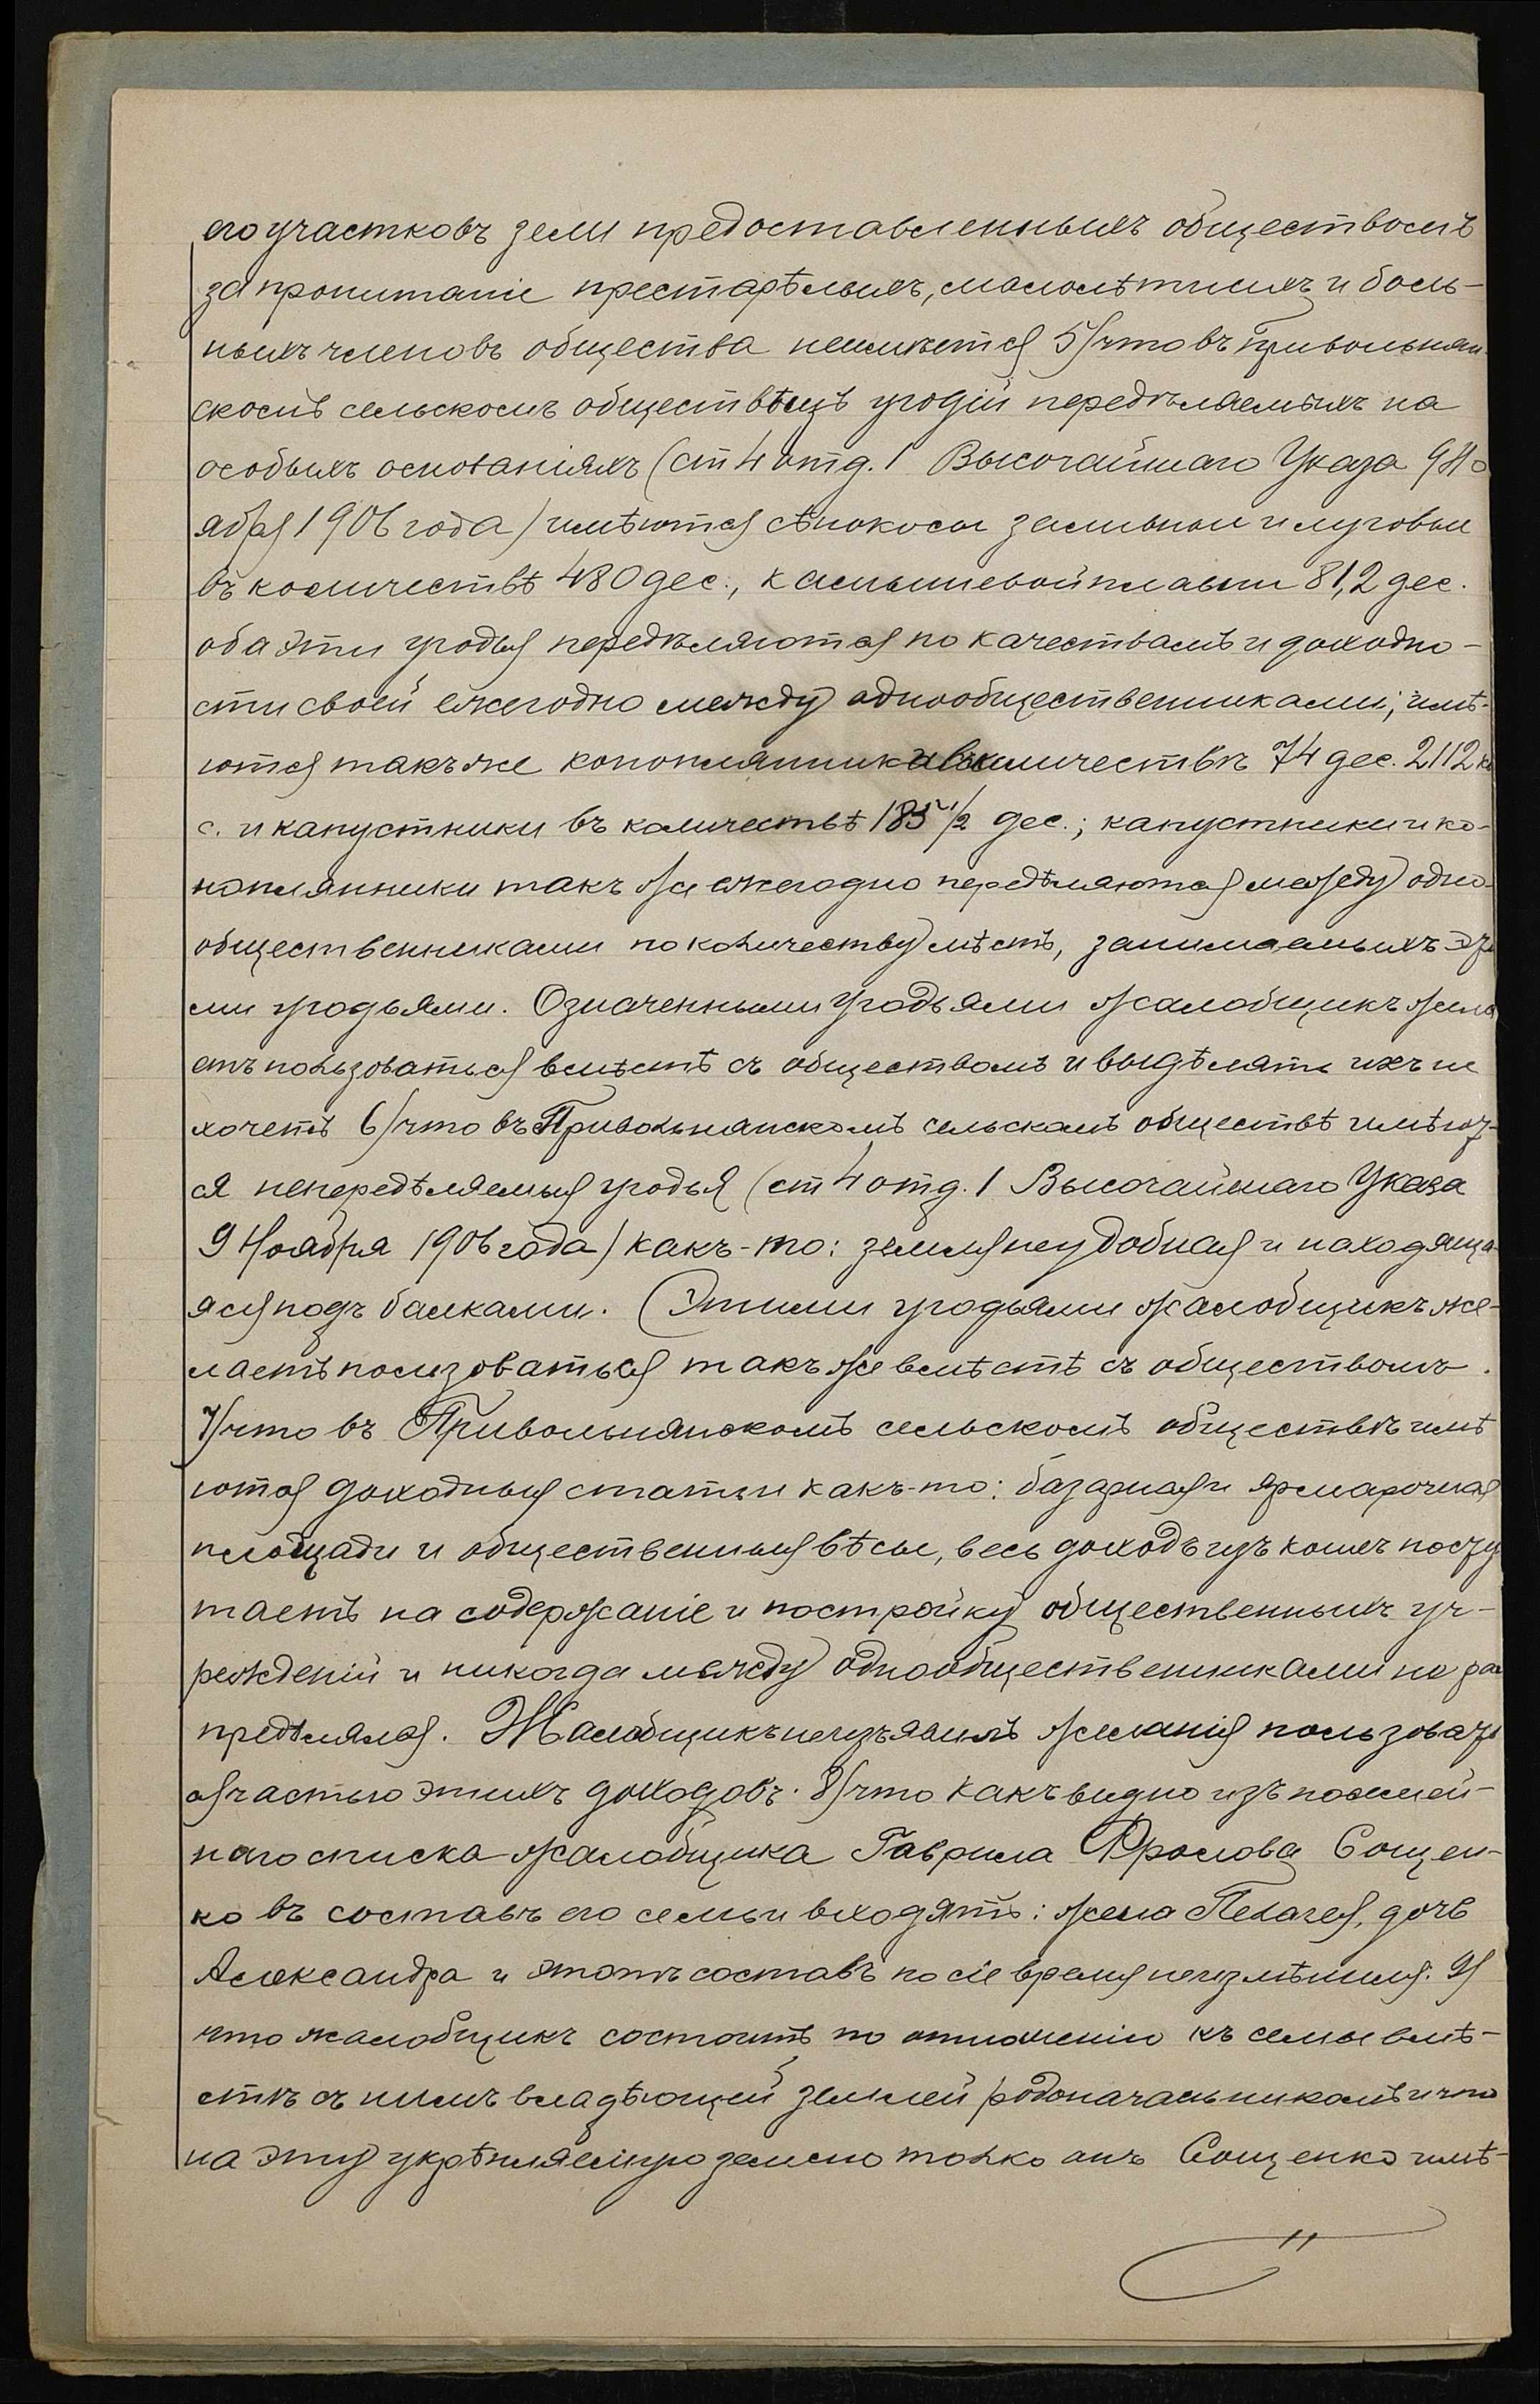 его участковъ зели предоставленныхъ обществомъ
за пропитаніе престарѣлыхъ, малолѣтнихъ и боль-
ныхъ членовъ общества неимѣется 5/ что въ Привольнян-
скомъ сельскомъ обществѣ изъ угодій передѣляемыхъ на
особыхъ основаніяхъ (ст 4 отд. 1 Высочайшаго Указа 9 Но
ября 1906 года) имѣются сѣнокосы заливныи и луговыи
въ количествѣ 480 дес., камышевой плавни 81,2 дес.
оба эти угодья передѣляются по качествамъ и доходно-
сти своей ежегодно между однообщественниками; имѣ-
ются такъ же конопляники въ количествѣ 74 дес. 2112 кв
с. и капустники въ количествѣ 185 1/2 дес.; капустники и ко-
нопляники такъ же ежегодно передѣляются между одно-
общественниками по количеству мѣстъ, занимаемыхъ эт
ми угодьями. Означенными угодьями жалобщикъ жела
етъ пользоваться вмѣстѣ съ обществомъ и выдѣлять ихъ не
хочетъ 6/ что въ Привольнянскомъ сельскомъ обществѣ имѣют-
ся непередѣляемыя угодья (ст 4 отд. 1 Высочайшаго Указа
9 Ноября 1906 года) какъ-то: земля неудобная и находяща-
яся подъ балками. Этими угодьями жалобщикъ же-
лаетъ пользоваться такъ же вмѣстѣ съ обществомъ.
7/ что въ Привольнянскомъ сельскомъ обществѣ имѣ
ются доходныя статьи какъ-то: базарная и ярмарочная
площади и общественныя вѣсы, весь доходъ изъ коихъ посту
паетъ на содержаніе и постройку общественныхъ уч-
режденій и никогда между однообщественниками не рас
предѣлялся. Жалобщикъ неизъявилъ желанія пользовать
ся частью этихъ доходовъ. 8/ что какъ видно изъ посемей-
наго списка жалобщика Гаврила Фролова Сощен-
ко въ составъ его семьи входятъ: жена Пелагея, дочь
Александра и этотъ составъ по сіе время неизмѣнился. 9/
что жалобщикъ состоитъ по отношенію къ семьи вмѣ-
стѣ съ нимъ владѣющей землей родоначальникомъ и что
на эту укрѣпляемую землю только онъ Сощенко имѣ-